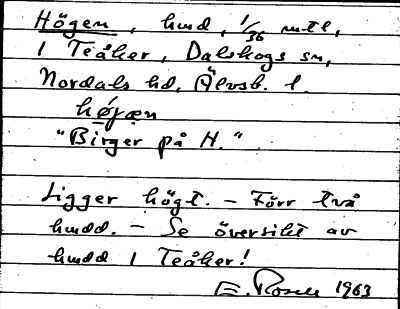 Högen, hmd, 1/36 mtl,
1 Teåker, Dalskogs sn,
Nordals hd, Älvsb. l.
hǿjæn
"Birger på H."
Ligger högt. – Förr två
hmdd. – Se översikt av
hmdd i Teåker!
E. Rosell 1963